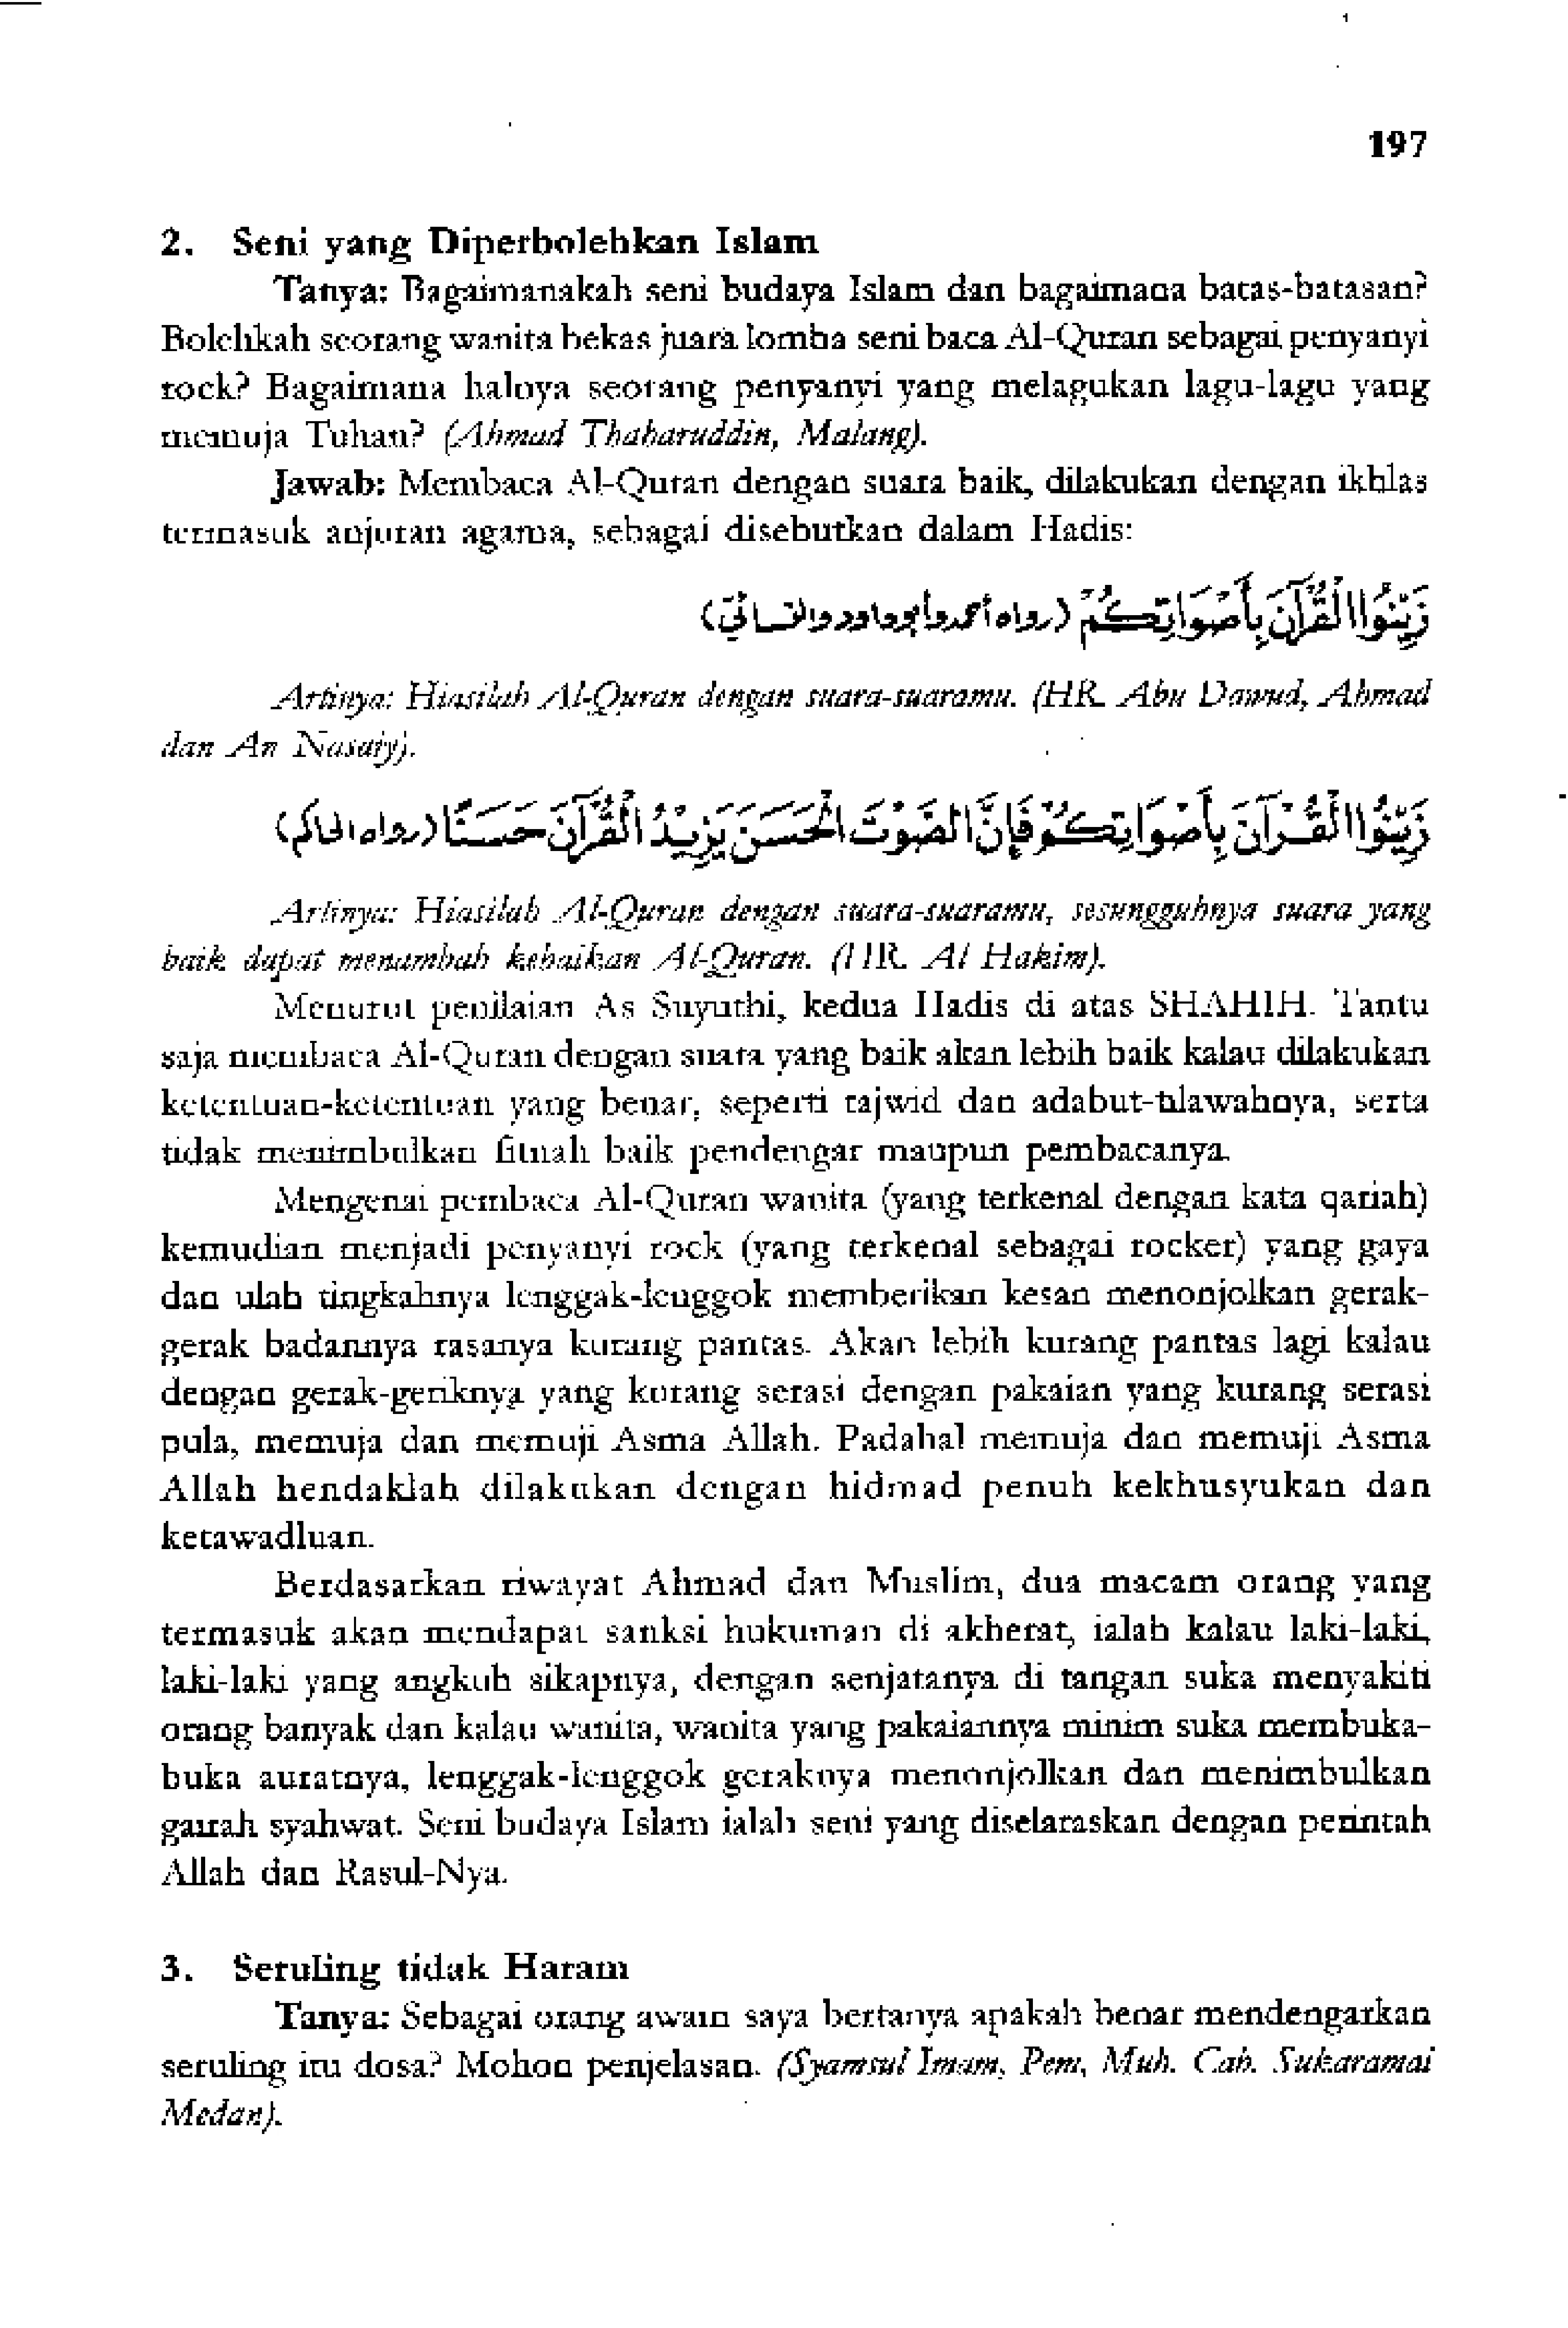 197
2. Seni yang Diperbolehkan Islam
Tanya: Bagaimanakah seni budaya Islam dan bagaimana batas-batasan?
Bolehkah seorang wanita bekas juara lomba seni baca Al-Quran sebagai penyanyi
rock? Bagaimana halnya seorang penyanyi yang melagukan lagu-lagu yang
memuja Tuhan? (Ahmad Thaharuddin, Malang).
Jawab: Membaca Al-Quran dengan suara baik, dilakukan dengan ikhlas
termasuk anjuran agama, sebagai disebutkan dalam Hadis:
زَيِّنُوا الْقُرْآنَ بِأَصْوَاتِكُمْ (رواه أحمد وأبو داود والنسائيّ)
Artinya: Hiasilah Al-Quran dengan suara-suaramu. (HR. Abu Dawud, Ahmad
dan An Nasaiy).
زَيِّنُوا الْقُرْآنَ بِأَصْوَاتِكُمْ فَإِنَّ الصَّوْتَ الْحَسَنَ يَزِيدُ الْقُرْآنَ حَسَنًا (رواه الحاكم)
Artinya: Hiasilah Al-Quran dengan suara-suaramu, sesungguhnya suara yang
baik dapat menambah kebaikan Al-Quran. (HR. Al Hakim).
Menurut penilaian As Suyuthi, kedua Hadis di atas SHAHIH. Tantu
saja membaca Al-Quran dengan suara yang baik akan lebih baik kalau dilakukan
ketentuan-ketentuan yang benar, seperti tajwid dan adabut-tilawahnya, serta
tidak menimbulkan fitnah baik pendengar maupun pembacanya.
Mengenai pembaca Al-Quran wanita (yang terkenal dengan kata qariah)
kemudian menjadi penyanyi rock (yang terkenal sebagai rocker) yang gaya
dan ulah tingkahnya lenggak-lenggok memberikan kesan menonjolkan gerak-
gerak badannya rasanya kurang pantas. Akan lebih kurang pantas lagi kalau
dengan gerak-geriknya yang kurang serasi dengan pakaian yang kurang serasi
pula, memuja dan memuji Asma Allah. Padahal memuja dan memuji Asma
Allah hendaklah dilakukan dengan hidmad penuh kekhusyukan dan
ketawadluan.
Berdasarkan riwayat Ahmad dan Muslim, dua macam orang yang
termasuk akan mendapat sanksi hukuman di akherat, ialah kalau laki-laki,
laki-laki yang angkuh sikapnya, dengan senjatanya di tangan suka menyakiti
orang banyak dan kalau wanita, wanita yang pakaiannya minim suka membuka-
buka auratnya, lenggak-lenggok geraknya menonjolkan dan menimbulkan
gairah syahwat. Seni budaya Islam ialah seni yang diselaraskan dengan perintah
Allah dan Rasul-Nya.
3. Seruling tidak Haram
Tanya: Sebagai orang awam saya bertanya apakah benar mendengarkan
seruling itu dosa? Mohon penjelasan. (Syamsul Imam, Pem, Muh. Cab. Sukaramai
Medan).